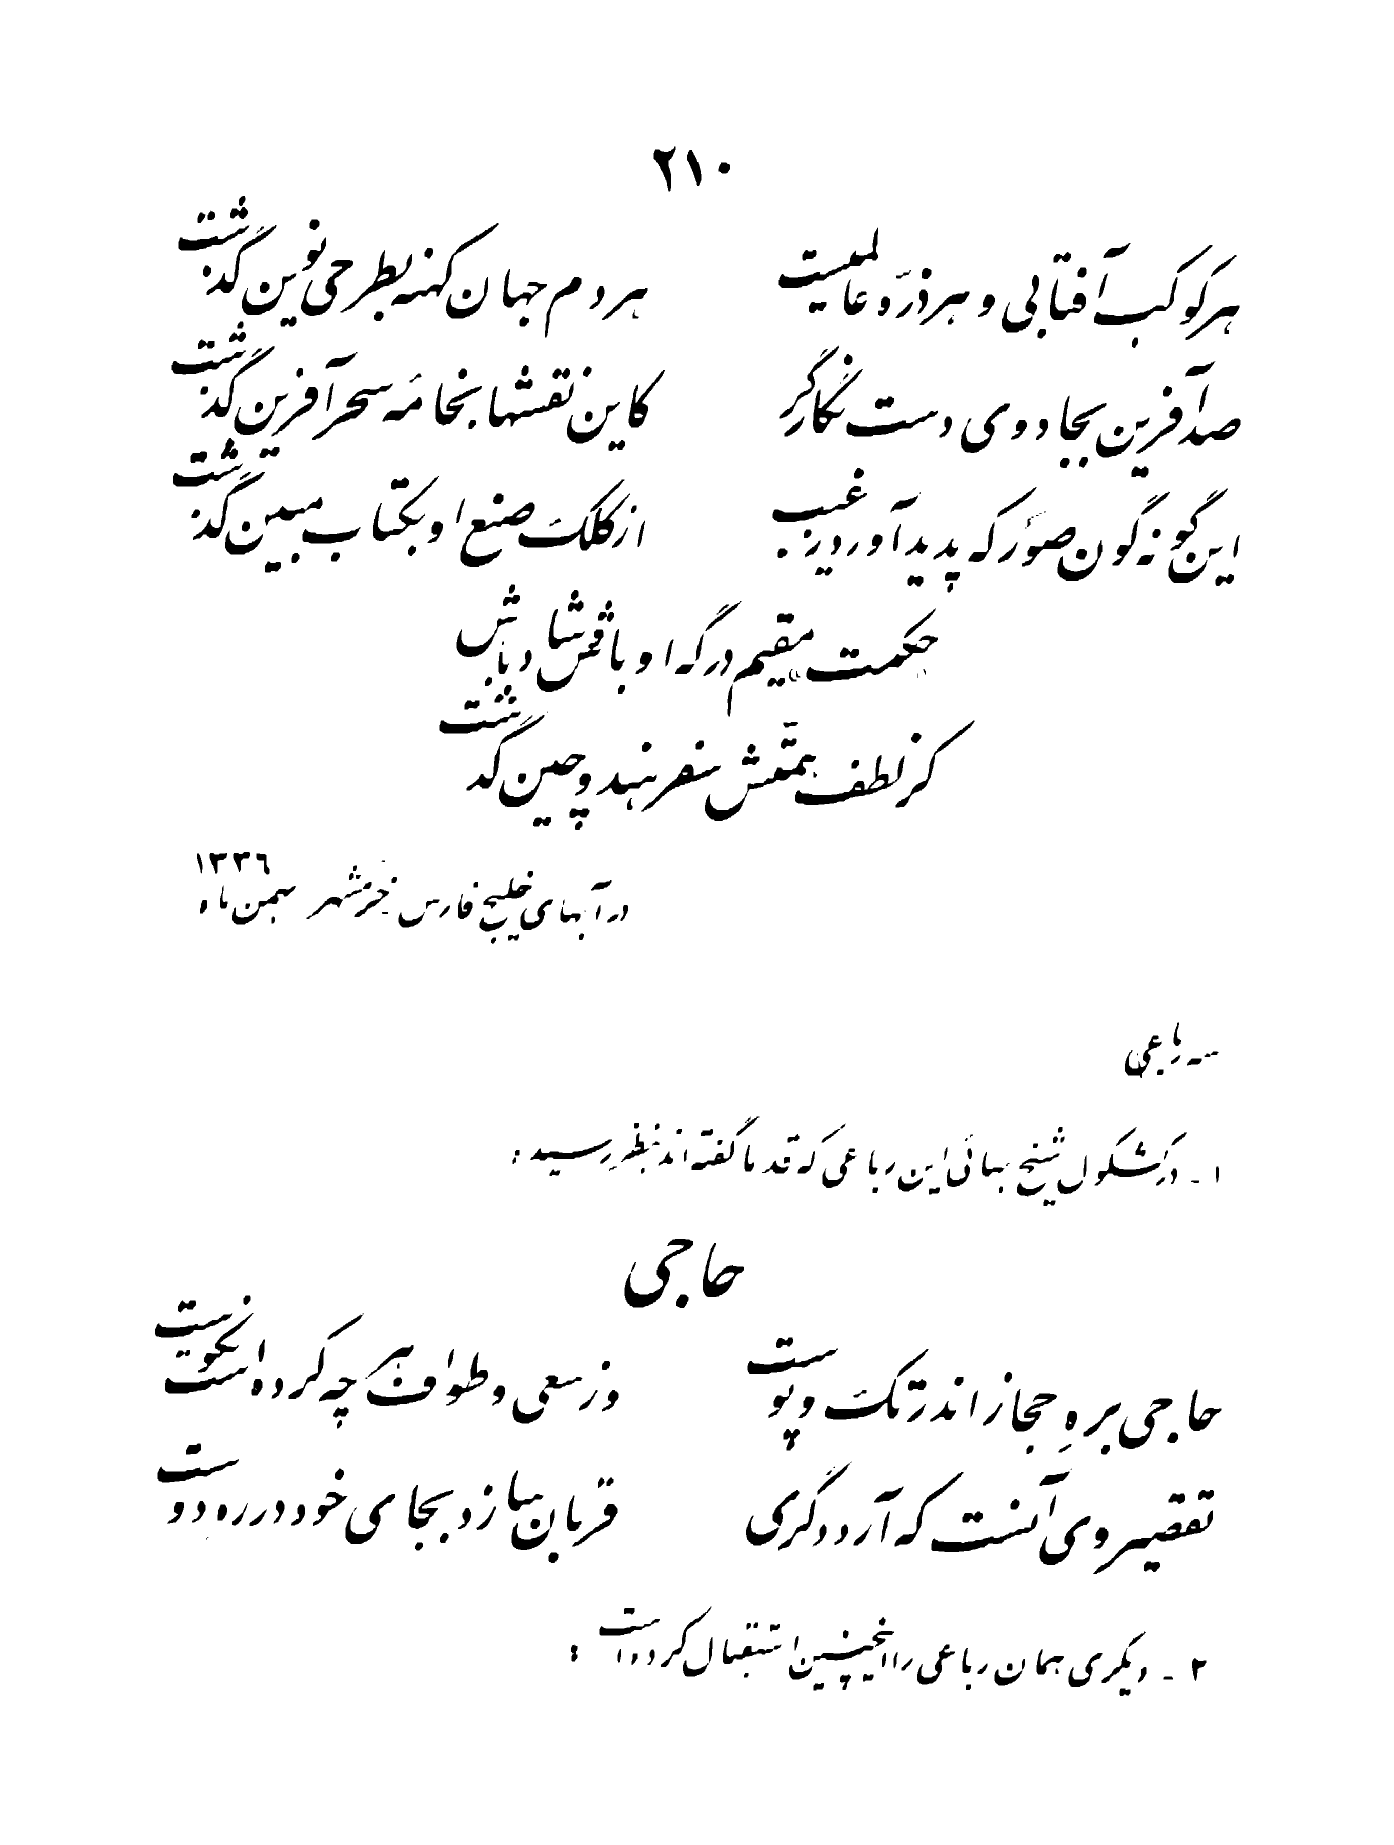 ۲۱۰
هر کوکب آفتابی و هر ذرّه عالمیست هر دم جهان کهنه بطرحی نوین گذشت
صد آفرین بجادوی دست نگارگر کاین نقشها بخامهٔ سحرآفرین گذشت
این گونه گون صور که پدید آورد ز غیب از کلک صنع او بکتاب مبین گذشت
حکمت مقیم درگه او باش و شاد باش
کز لطف همتش سفر هند و چین گذشت
در آبهای خلیج فارس خرمشهر بهمن ماه ۱۳۳۶
سه رباعی
۱ - در کشکول شیخ بهائی این رباعی که قدما گفته اند بنظر رسید :
حاجی
حاجی بره حجاز اندر تک و پوست وز سعی و طواف هر چه کرده است نکوست
تقصیر وی آنست که آرد دگری قربان سازد بجای خود در ره دوست
۲ - دیگری همان رباعی را اینچنین استقبال کرده است :